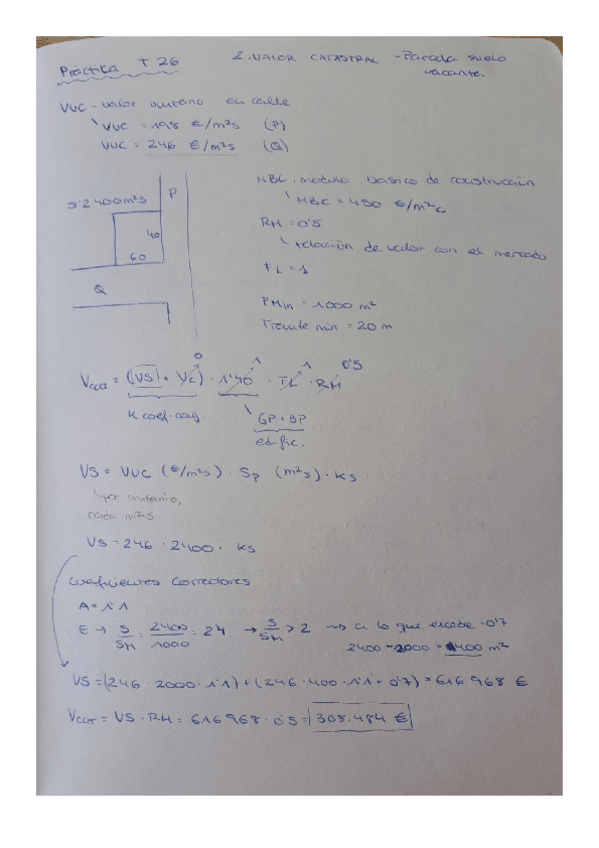 Práctica T 26
2. VALOR CATASTRAL - Parcela suelo
vacante.
VUC - valor unitario en calle
VUC = 198 €/m²s (P)
VUC = 246 €/m²s (Q)
MBC. módulo básico de construcción
MBC = 450 €/m²c
S=2400m²s
P
RM = 0'5
relación de valor con el mercado
40
60
FL = 1
Q
PMin = 1000 m²
Frente min = 20 m
0 1 1 0'5
Vcat = (VS + Vc) · 1'40 · FL · RM
K coef. coq. GP + BP
edific.
VS = VUC (€/m²s) · Sp (m²s) · Ks
por unitario,
cada m²s.
VS = 246 · 2400 · Ks
Coeficientes correctores
A = 1'1
E → S/SM = 2400/1000 = 2'4 → S/SM > 2 → a lo que excede = 0'7
2400 - 2000 = 400 m²
VS = (246 · 2000 · 1'1) + (246 · 400 · 1'1 · 0'7) = 616 968 €
Vcat = VS · RM = 616968 · 0'5 = 308.484 €